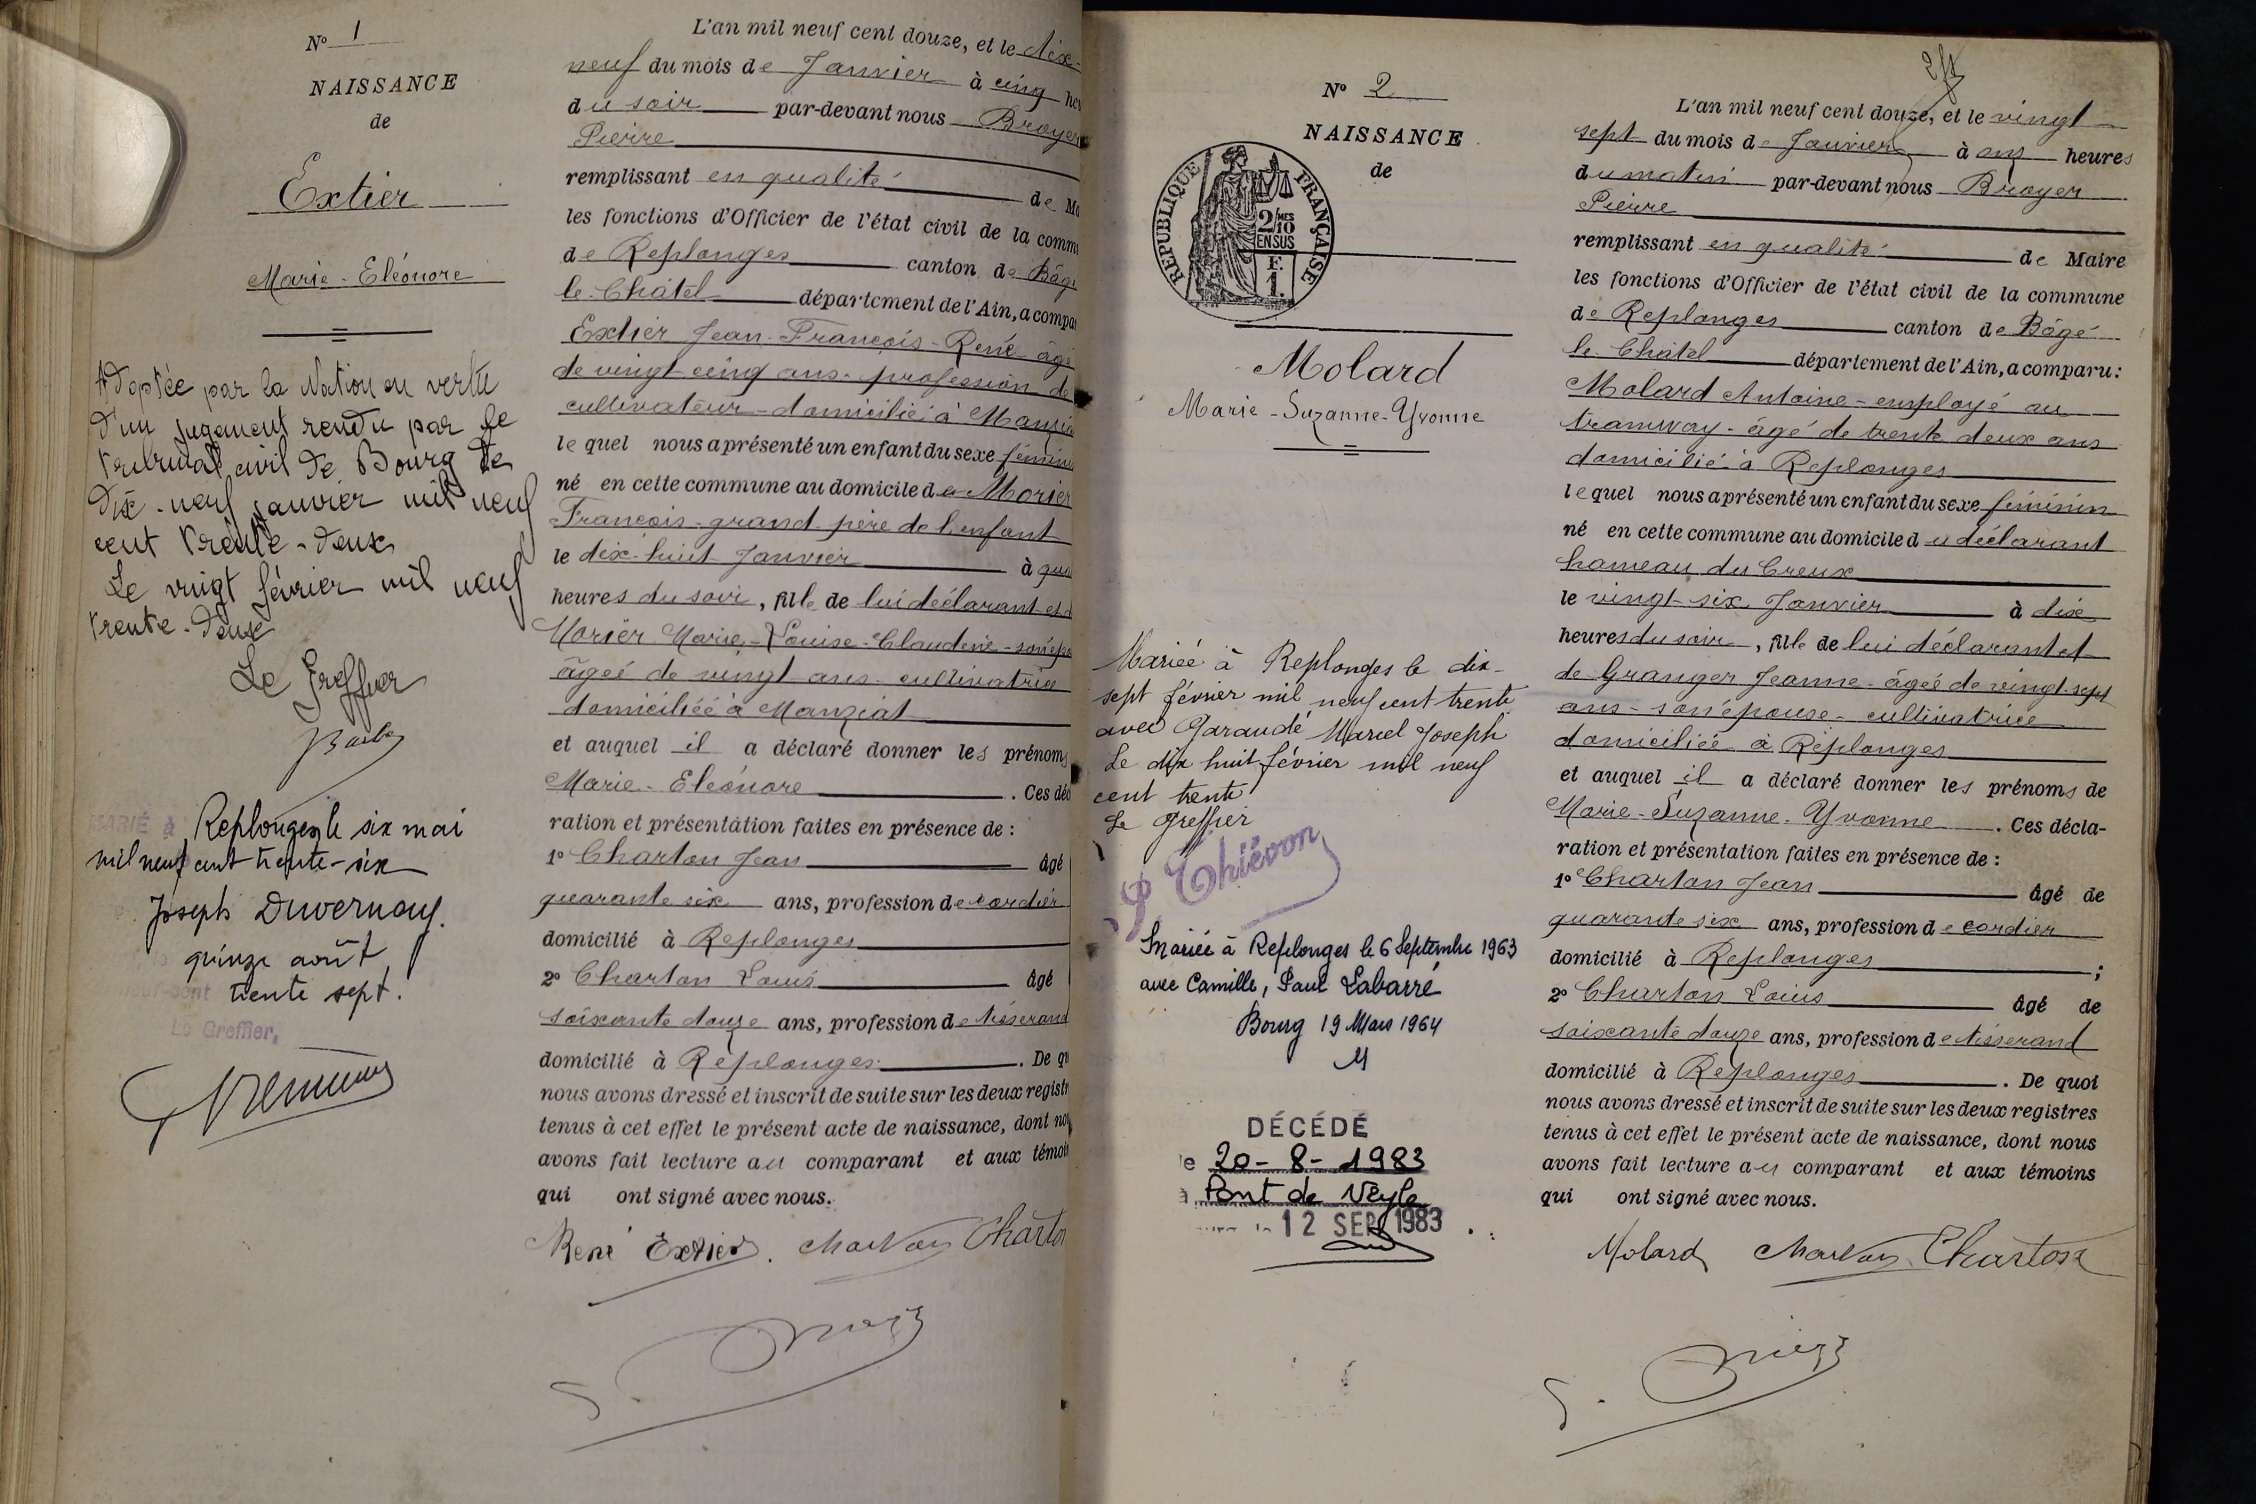 N° 1
NAISSANCE
de
Extier
Marie-Eléonore
Adoptée par la Nation en vertu
d'un jugement rendu par le
tribunal civil de Bourg le
dix-neuf janvier mil neuf
cent trente-deux
Le vingt février mil neuf
trente-deux
Le Greffier
MARIÉ à Replonges le six mai
mil neuf cent trente-six
Joseph Duvernay.
quinze août
trente sept.
Le Greffier,
L'an mil neuf cent douze, et le dix-
neuf du mois de Janvier à cinq heu
du soir par-devant nous Broyer
Pierre
remplissant en qualité de Ma
les fonctions d'Officier de l'état civil de la comm
de Replonges canton de Bâgé
le Châtel département de l'Ain, a compa
Extier Jean-François-René âgé
de vingt-cinq ans-profession de
cultivateur-domicilié à Manzia
lequel nous a présenté un enfant du sexe fémini
né en cette commune au domicile de Morier
François-grand-père de l'enfant
le dix-huit Janvier à qua
heures du soir, fille de lui déclarant et d
Morier Marie-Louise-Claudine-son épo
âgée de vingt ans-cultivatrice
domiciliée à Manziat
et auquel il a déclaré donner les prénoms
Marie-Eléonore. Ces décl
ration et présentation faites en présence de :
1° Charton Jean âgé
quarante six ans, profession de cordier
domicilié à Replonges
2° Charton Louis âgé
soixante douze ans, profession de tisserand
domicilié à Replonges. De qu
nous avons dressé et inscrit de suite sur les deux registr
tenus à cet effet le présent acte de naissance, dont nou
avons fait lecture au comparant et aux témoi
qui ont signé avec nous.
René Extier. Charton Charto
N° 2
NAISSANCE
de
RÉPUBLIQUE FRANÇAISE
2/10 MES
EN SUS
F.
1.
Molard
Marie-Suzanne-Yvonne
Mariée à Replonges le dix-
sept février mil neuf cent trente
avec Garaudé Marcel Joseph
Le dix huit février mil neuf
cent trente
Le Greffier
P Thiévon
Mariée à Replonges le 6 Septembre 1963
avec Camille, Paul Labarré
Bourg 19 Mars 1964
DÉCÉDÉ
le 20-8-1983
à Pont de Veyle
12 SEP 1983
2/1
L'an mil neuf cent douze, et le vingt
sept du mois de Janvier à onze heures
du matin par-devant nous Broyer
Pierre
remplissant en qualité de Maire
les fonctions d'Officier de l'état civil de la commune
de Replonges canton de Bâgé
le Châtel département de l'Ain, a comparu :
Molard Antoine-employé au
tramway-âgé de trente deux ans
domicilié à Replonges
lequel nous a présenté un enfant du sexe féminin
né en cette commune au domicile du déclarant
hameau du Creux
le vingt-six Janvier à dix
heures du soir, fille de lui déclarant et
de Granger Jeanne-âgée de vingt-sept
ans-son épouse-cultivatrice
domiciliée à Replonges
et auquel il a déclaré donner les prénoms de
Marie-Suzanne-Yvonne. Ces décla-
ration et présentation faites en présence de :
1° Charton Jean âgé de
quarante six ans, profession de cordier
domicilié à Replonges ;
2° Charton Louis âgé de
soixante douze ans, profession de tisserand
domicilié à Replonges. De quoi
nous avons dressé et inscrit de suite sur les deux registres
tenus à cet effet le présent acte de naissance, dont nous
avons fait lecture au comparant et aux témoins
qui ont signé avec nous.
Molard Charton Charton